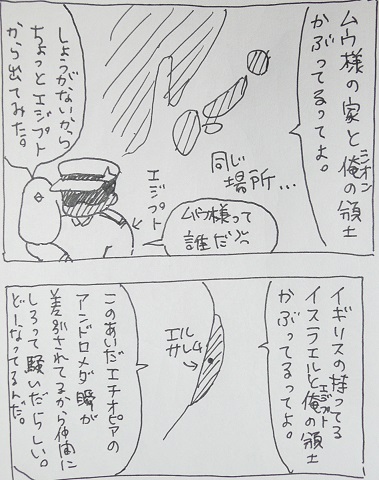 ムウ様の家と俺の領土
シオン
かぶってるってよ。
同じ
場所…
しょうがないから
ちょっとエジプト
から出てみた。
エジプト
ムウ様って
誰だ
イギリスの持ってる
イスラエルと俺の領土
エジプト
かぶってるってよ。
エル
サレム
このあいだエチオピアの
アンドロメダ瞬が
差別されてるから仲間に
しろって騒いだらしい。
どーなってるんだ。